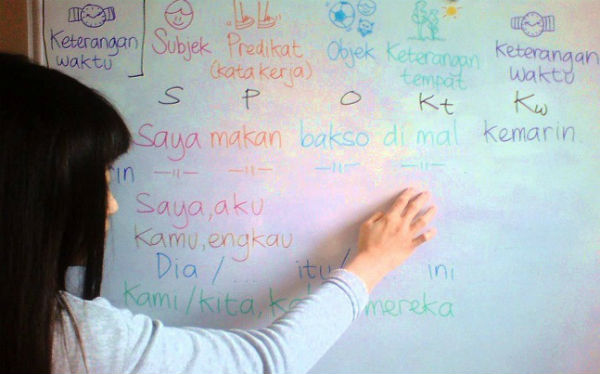 Keterangan waktu Subjek Predikat (kata kerja) Objek Keterangan tempat Keterangan waktu
S P O Kt Kw
Saya makan bakso di mal kemarin.
rin —||— —||— —||— —||—
Saya, aku
Kamu, engkau
Dia / ... itu/ ini
Kami/kita, mereka